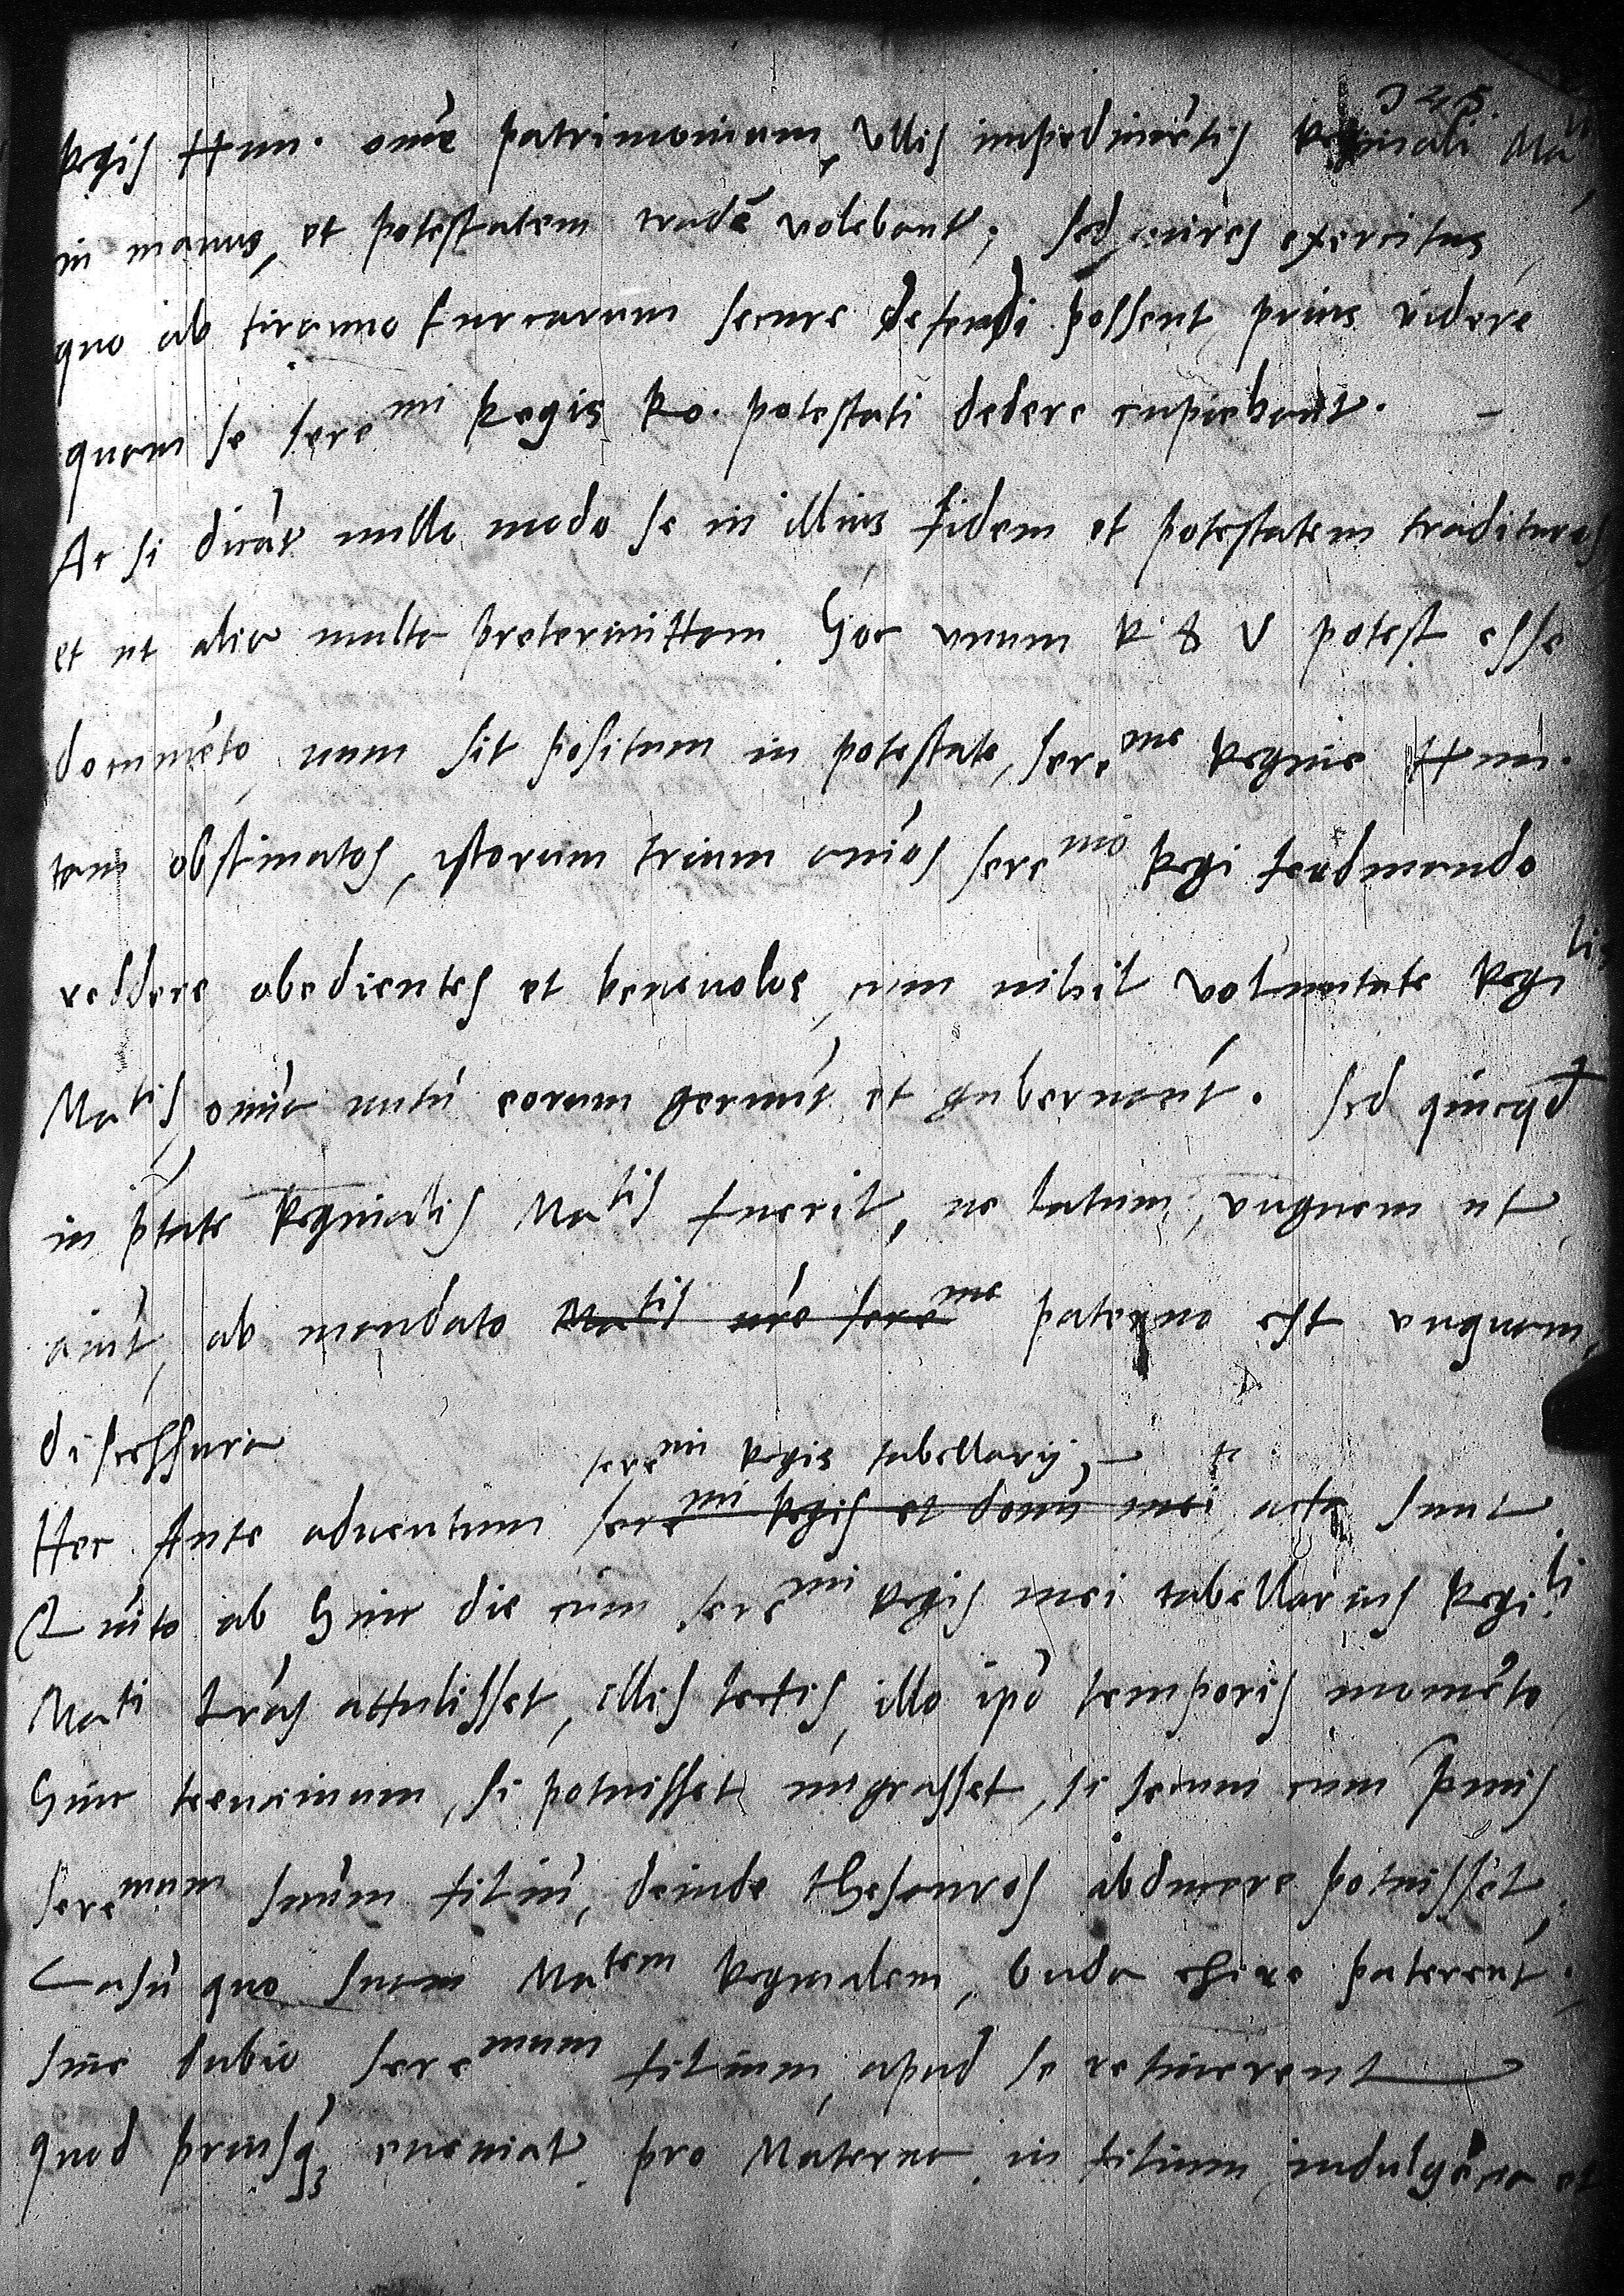 Regis Hun. omẽ patrimonium, ullis impedimẽtis Reginali Ma^ti
in manus, et potestatem tradẽ volebant; sed vires exercitus,
quo ab tiranno turcarum secure defendi possent, prius videre
quam se sere^mi Regis Ro. potestati dedere cupiebant. —
Ac si dicãt nullo modo se in illius fidem et potestatem tradituros
et ut alia multa pretermittam. Hoc unum R. & V potest esse
documẽto, num sit positum in potestate, sere^me Regine Hun.
tam obstinatos, istorum trium aniõs sere^mo Regi ferdinando
reddere obedientes et benevolos, cum nihil voluntate Regi^lis
Ma^tis, omnia nutũ eorum gerunt, et gubernant. Sed quicqd
in ptate Reginalis Ma^tis fuerit, ne latum, unguem ut
aiũt, ab mandato Ma^tis nrẽ sere^me paterno est unquam,
discessura
sere^mi Regis tabellarij. —
Hec Ante adventum sere^mi Regis et domi mei acta sunt
Quito ab hinc die cum sere^mi Regis mei tabellarius Regi^li
Ma^ti Lrãs attulisset, illis lectis, illo ipõ temporis momẽto,
hinc trencinium, si potuisset migrasset, si secum cum primis
sere^mum suum filiũ, deinde thesauros abducere potuisset.
Casũ quo suam Ma^tem Reginalem, buda exire paterent;
sine dubio sere^mum filium, apud se retinerent
quod priusq3 eveniat pro Materna in filium indulgẽcia et